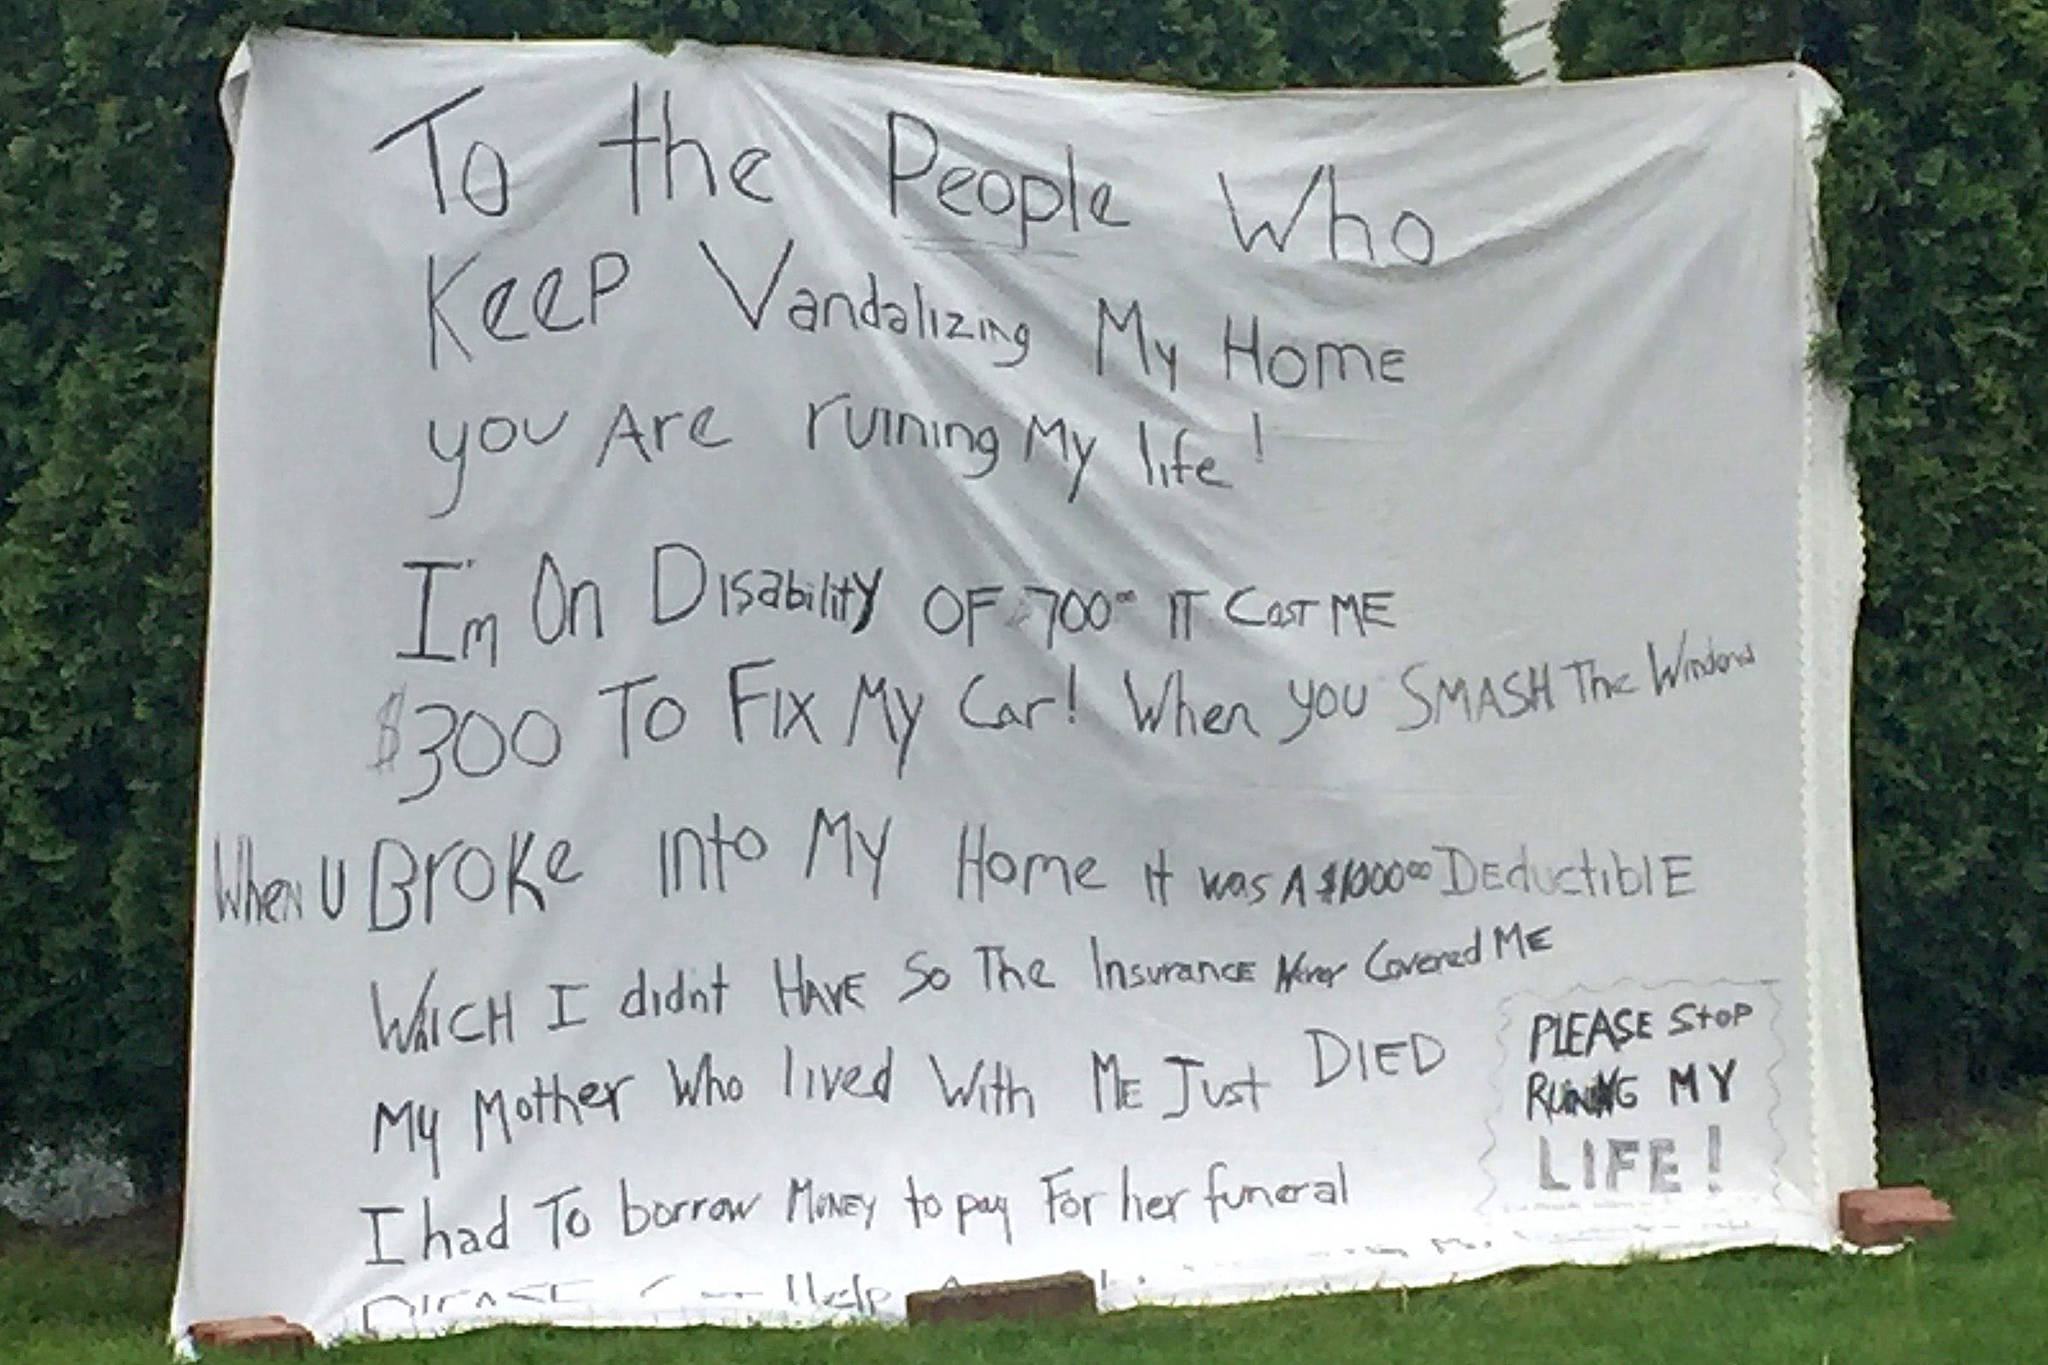 To the People Who
Keep Vandalizing My Home
you Are ruining My life!
I'm On Disability OF $700⁰⁰ IT Cost ME
$300 To Fix My Car! When you SMASH The Windows
When U Broke into My Home it was A $1000⁰⁰ DEductiblE
WhICH I didnt HAVE So The InsurancE Never Covered ME
My Mother Who lived With ME Just DIED
I had To borrow MONEY to pay For her funeral
Help
PLEASE StoP
RUINING MY
LIFE!